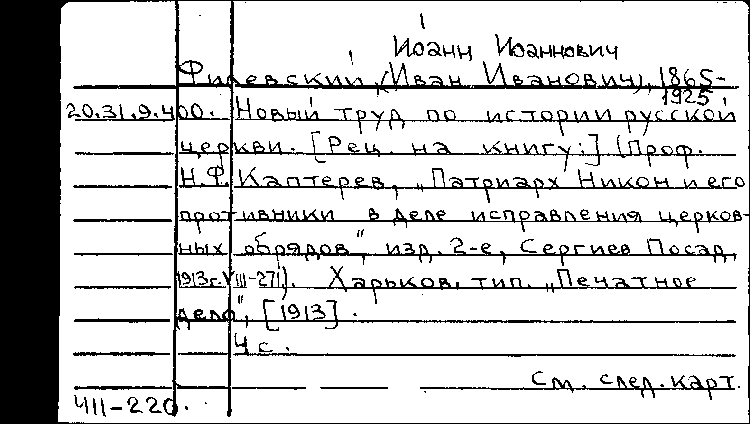 Иоанн Иоаннович
Филевский, (Иван Иванович), 1865-
1925
20.31.9.400. Новый труд по истории русской
церкви. [Рец. на книгу:] (Проф.
Н.Ф. Каптерев, „Патриарх Никон и его
противники в деле исправления церков-
ных обрядов", изд. 2-е, Сергиев Посад,
1913г. VIII-271). Харьков, тип. „Печатное
дело", [1913].
4 с.
См. след. карт.
Ч11-220.